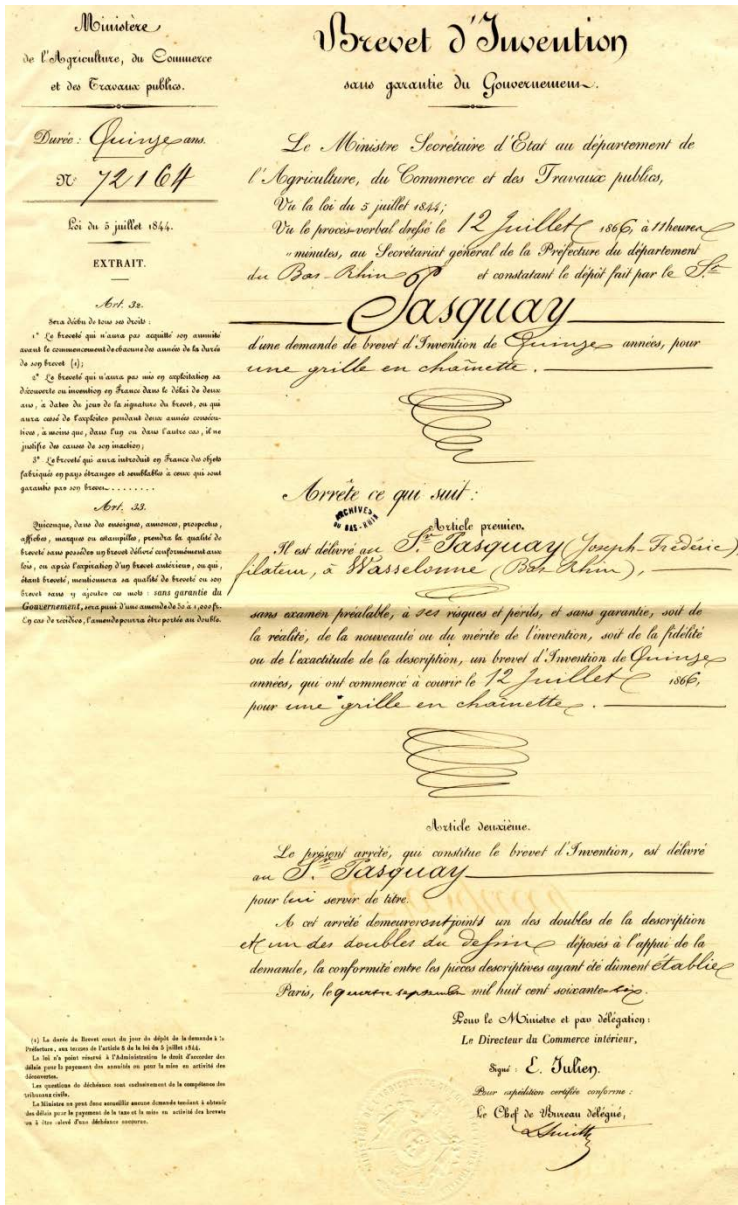 Ministère
de l'Agriculture, du Commerce
et des Travaux publics.
Durée : Quinze ans.
N° 72164
Loi du 5 juillet 1844.
EXTRAIT.
Art. 32.
Sera déchu de tous ses droits :
1° Le breveté qui n'aura pas acquitté son annuité
avant le commencement de chacune des années de la durée
de son brevet (1) ;
2° Le breveté qui n'aura pas mis en exploitation sa
découverte ou invention en France dans le délai de deux
ans, à dater du jour de la signature du brevet, ou qui
aura cessé de l'exploiter pendant deux années consécu-
tives, à moins que, dans l'un ou dans l'autre cas, il ne
justifie des causes de son inaction ;
3° Le breveté qui aura introduit en France des objets
fabriqués en pays étranger et semblables à ceux qui sont
garantis par son brevet........
Art. 33.
Quiconque, dans des enseignes, annonces, prospectus,
affiches, marques ou estampilles, prendra la qualité de
breveté sans posséder un brevet délivré conformément aux
lois, ou après l'expiration d'un brevet antérieur, ou qui,
étant breveté, mentionnera sa qualité de breveté ou son
brevet sans y ajouter ces mots : sans garantie du
Gouvernement, sera puni d'une amende de 50 à 1,000 fr.
En cas de récidive, l'amende pourra être portée au double.
(1) La durée du Brevet court du jour du dépôt de la demande à la
Préfecture, aux termes de l'article 8 de la loi du 5 juillet 1844.
La loi n'a point réservé à l'Administration le droit d'accorder des
délais pour le payement des annuités ou pour la mise en activité des
découvertes.
Les questions de déchéance sont exclusivement de la compétence des
tribunaux civils.
Le Ministre ne peut donc accueillir aucune demande tendant à obtenir
des délais pour le payement de la taxe et la mise en activité des brevets
ou à être relevé d'une déchéance encourue.
Brevet d'Invention
sans garantie du Gouvernement.
Le Ministre Secrétaire d'Etat au département de
l'Agriculture, du Commerce et des Travaux publics,
Vu la loi du 5 juillet 1844;
Vu le procès-verbal dressé le 12 Juillet 1866, à 11 heures
" minutes, au Secrétariat général de la Préfecture du département
du Bas-Rhin et constatant le dépôt fait par le Sr
Pasquay
d'une demande de brevet d'Invention de Quinze années, pour
une grille en chaînette.
Arrête ce qui suit :
ARCHIVES
DU BAS-RHIN
Article premier.
Il est délivré au Sr Pasquay (Joseph-Frédéric)
filateur, à Wasselonne (Bas-Rhin),
sans examen préalable, à ses risques et périls, et sans garantie, soit de
la réalité, de la nouveauté ou du mérite de l'invention, soit de la fidélité
ou de l'exactitude de la description, un brevet d'Invention de Quinze
années, qui ont commencé à courir le 12 Juillet 1866,
pour une grille en chaînette.
Article deuxième.
Le présent arrêté, qui constitue le brevet d'Invention, est délivré
au Sr Pasquay
pour lui servir de titre.
A cet arrêté demeureront joints un des doubles de la description
et un des doubles du dessin déposés à l'appui de la
demande, la conformité entre les pièces descriptives ayant été dûment établie
Paris, le quatre septembre mil huit cent soixante-six.
Pour le Ministre et par délégation :
Le Directeur du Commerce intérieur,
Signé : E. Julien.
Pour expédition certifiée conforme :
Le Chef de Bureau délégué,